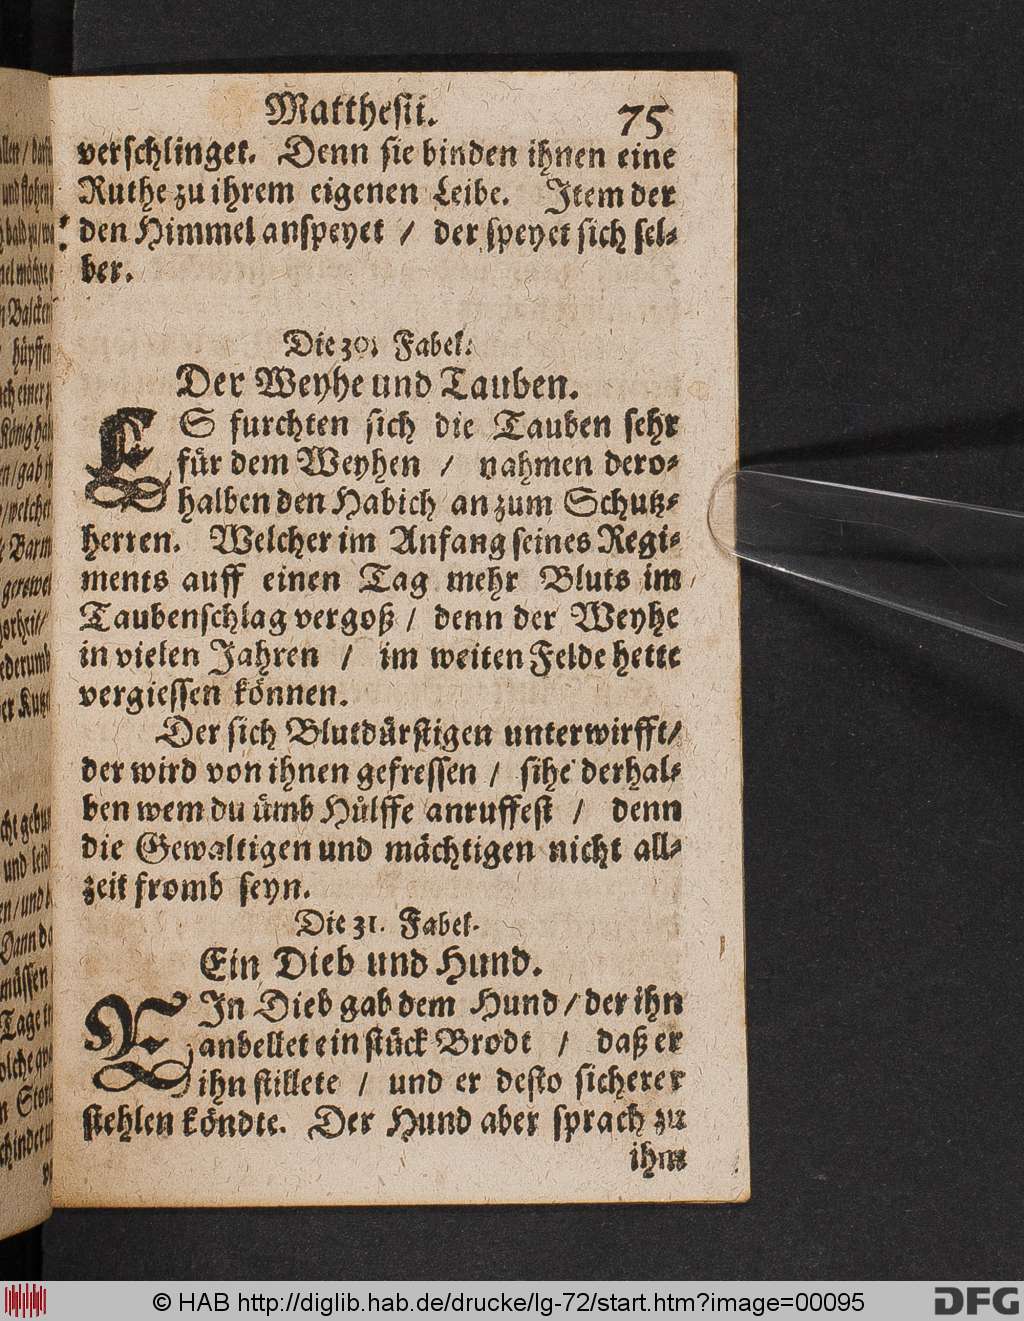 Matthesii. 75
verschlinget. Denn sie binden ihnen eine
Ruthe zu ihrem eigenen Leibe. Item der
den Himmel anspeyet / der speyet sich sel-
ber.
Die 30. Fabel.
Der Weyhe und Tauben.
ES furchten sich die Tauben sehr
für dem Weyhen / nahmen dero-
halben den Habich an zum Schutz-
herren. Welcher im Anfang seines Regi-
ments auff einen Tag mehr Bluts im
Taubenschlag vergoß / denn der Weyhe
in vielen Jahren / im weiten Felde hette
vergiessen können.
Der sich Blutdürstigen unterwirfft/
der wird von ihnen gefressen / sihe derhal-
ben wem du ümb Hülffe anruffest / denn
die Gewaltigen und mächtigen nicht all-
zeit fromb seyn.
Die 31. Fabel.
Ein Dieb und Hund.
EIn Dieb gab dem Hund / der ihn
anbellet ein stück Brodt / daß er
ihn stillete / und er desto sicherer
stehlen köndte. Der Hund aber sprach zu
ihm
© HAB http://diglib.hab.de/drucke/lg-72/start.htm?image=00095
DFG